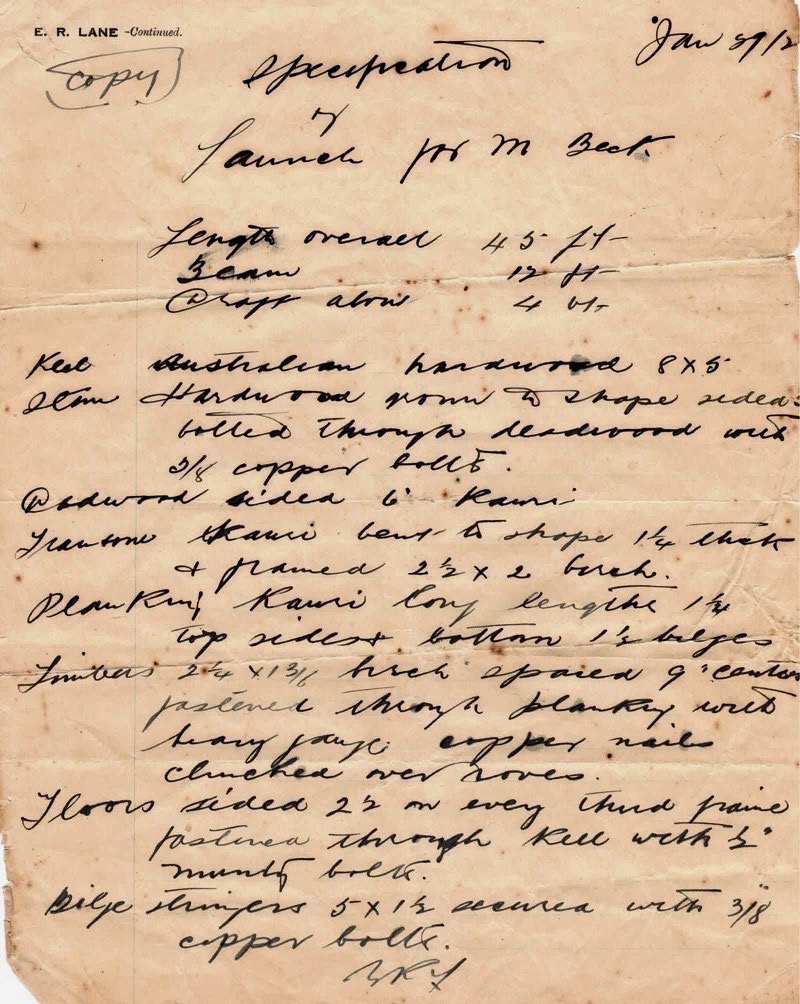 E. R. LANE -Continued.
Jan 29/2
copy
Specification
of
Launch for M Beck.
Length overall 45 ft
Beam 12 ft
Draft about 4 ft
Keel Australian hardwood 8 x 5
Stem Hardwood grown to shape sided
bolted through deadwood with
5/8 copper bolts.
Deadwood sided 6" Kauri
Transome Kauri bent to shape 1¼ thick
& framed 2½ x 2 birch.
Planking Kauri long lengths 1¼
top sides & bottom 1½ bilges
Timbers 2¼ x 1 3/16 birch spaced 9" centers
fastened through planking with
heavy gauge copper nails
clinched over roves.
Floors sided 2½ on every third frame
fastened through Keel with ½"
muntz bolts.
Bilge stringers 5 x 1½ secured with 3/8"
copper bolts.